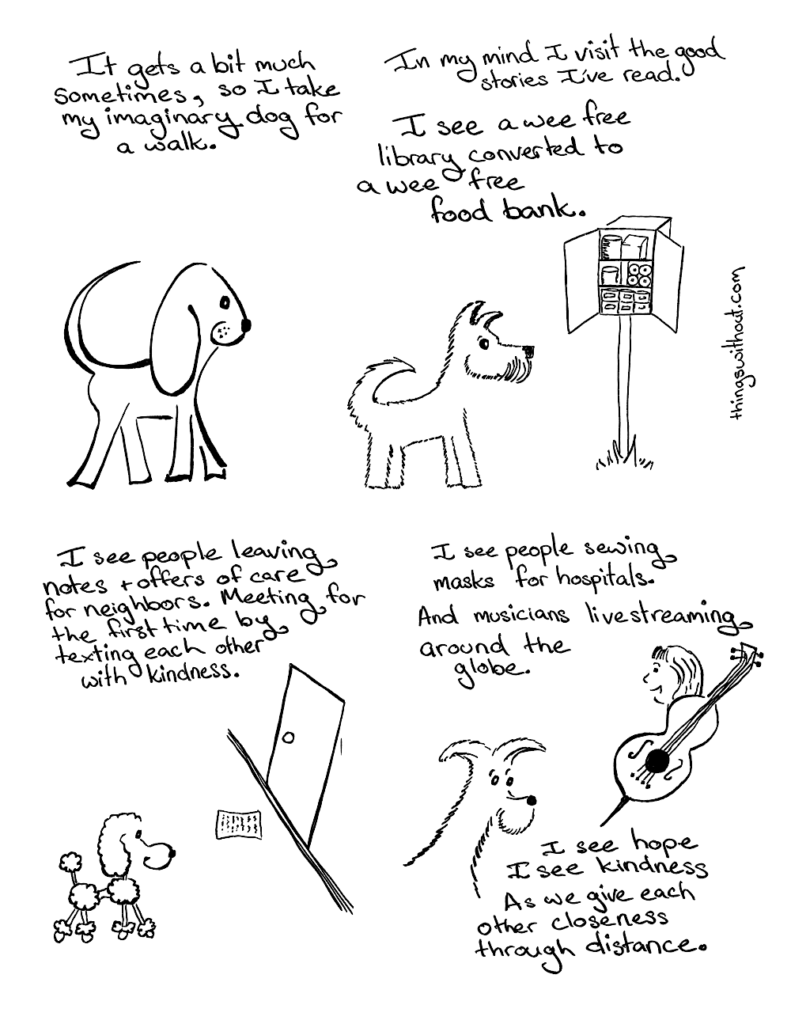 It gets a bit much
sometimes, so I take
my imaginary dog for
a walk.
In my mind I visit the good
stories I've read.
I see a wee free
library converted to
a wee free
food bank.
thingswithout.com
I see people leaving
notes + offers of care
for neighbors. Meeting for
the first time by
texting each other
with kindness.
I see people sewing
masks for hospitals.
And musicians livestreaming
around the
globe.
I see hope
I see kindness
As we give each
other closeness
through distance.